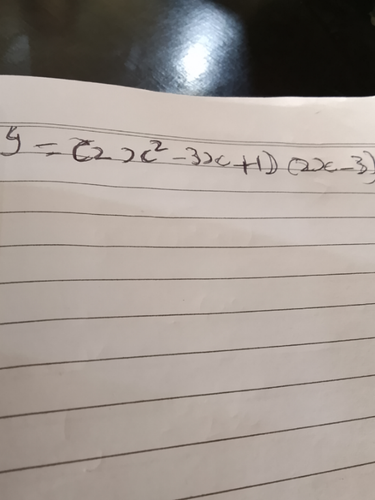 y = (2x² - 3x + 1) (2x - 3)